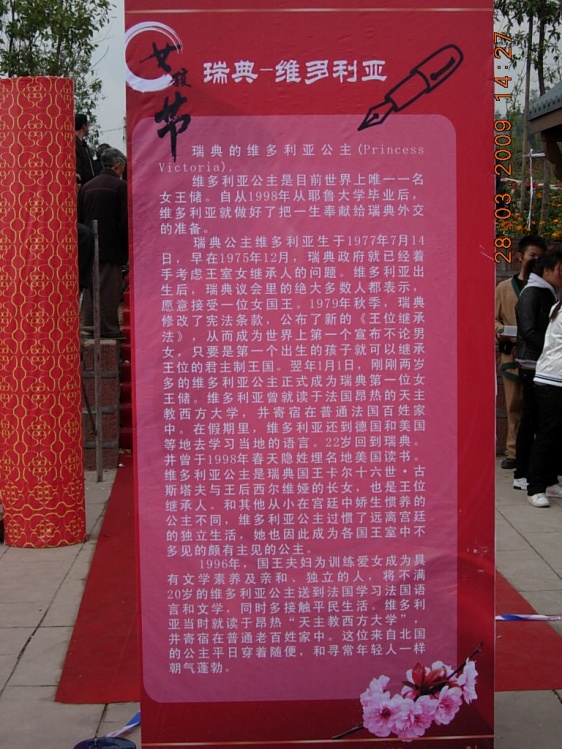 女孩节
瑞典-维多利亚
瑞典的维多利亚公主(Princess
Victoria).
维多利亚公主是目前世界上唯一一名
女王储。自从1998年从耶鲁大学毕业后,
维多利亚就做好了把一生奉献给瑞典外交
的准备。
瑞典公主维多利亚生于1977年7月14
日,早在1975年12月,瑞典政府就已经着
手考虑王室女继承人的问题。维多利亚出
生后,瑞典议会里的绝大多数人都表示,
愿意接受一位女国王。1979年秋季,瑞典
修改了宪法条款,公布了新的《王位继承
法》,从而成为世界上第一个宣布不论男
女,只要是第一个出生的孩子就可以继承
王位的君主制王国。翌年1月1日,刚刚两岁
多的维多利亚公主正式成为瑞典第一位女
王储。维多利亚曾就读于法国昂热的天主
教西方大学,并寄宿在普通法国百姓家
中。在假期里,维多利亚还到德国和美国
等地去学习当地的语言。22岁回到瑞典。
并曾于1998年春天隐姓埋名地美国读书。
维多利亚公主是瑞典国王卡尔十六世·古
斯塔夫与王后西尔维娅的长女,也是王位
继承人。和其他从小在宫廷中娇生惯养的
公主不同,维多利亚公主过惯了远离宫廷
的独立生活,她也因此成为各国王室中不
多见的颇有主见的公主。
1996年,国王夫妇为训练爱女成为具
有文学素养及亲和、独立的人,将不满
20岁的维多利亚公主送到法国学习法国语
言和文学,同时多接触平民生活。维多利
亚当时就读于昂热“天主教西方大学”,
并寄宿在普通老百姓家中。这位来自北国
的公主平日穿着随便,和寻常年轻人一样
朝气蓬勃。
28/03/2009 14:27